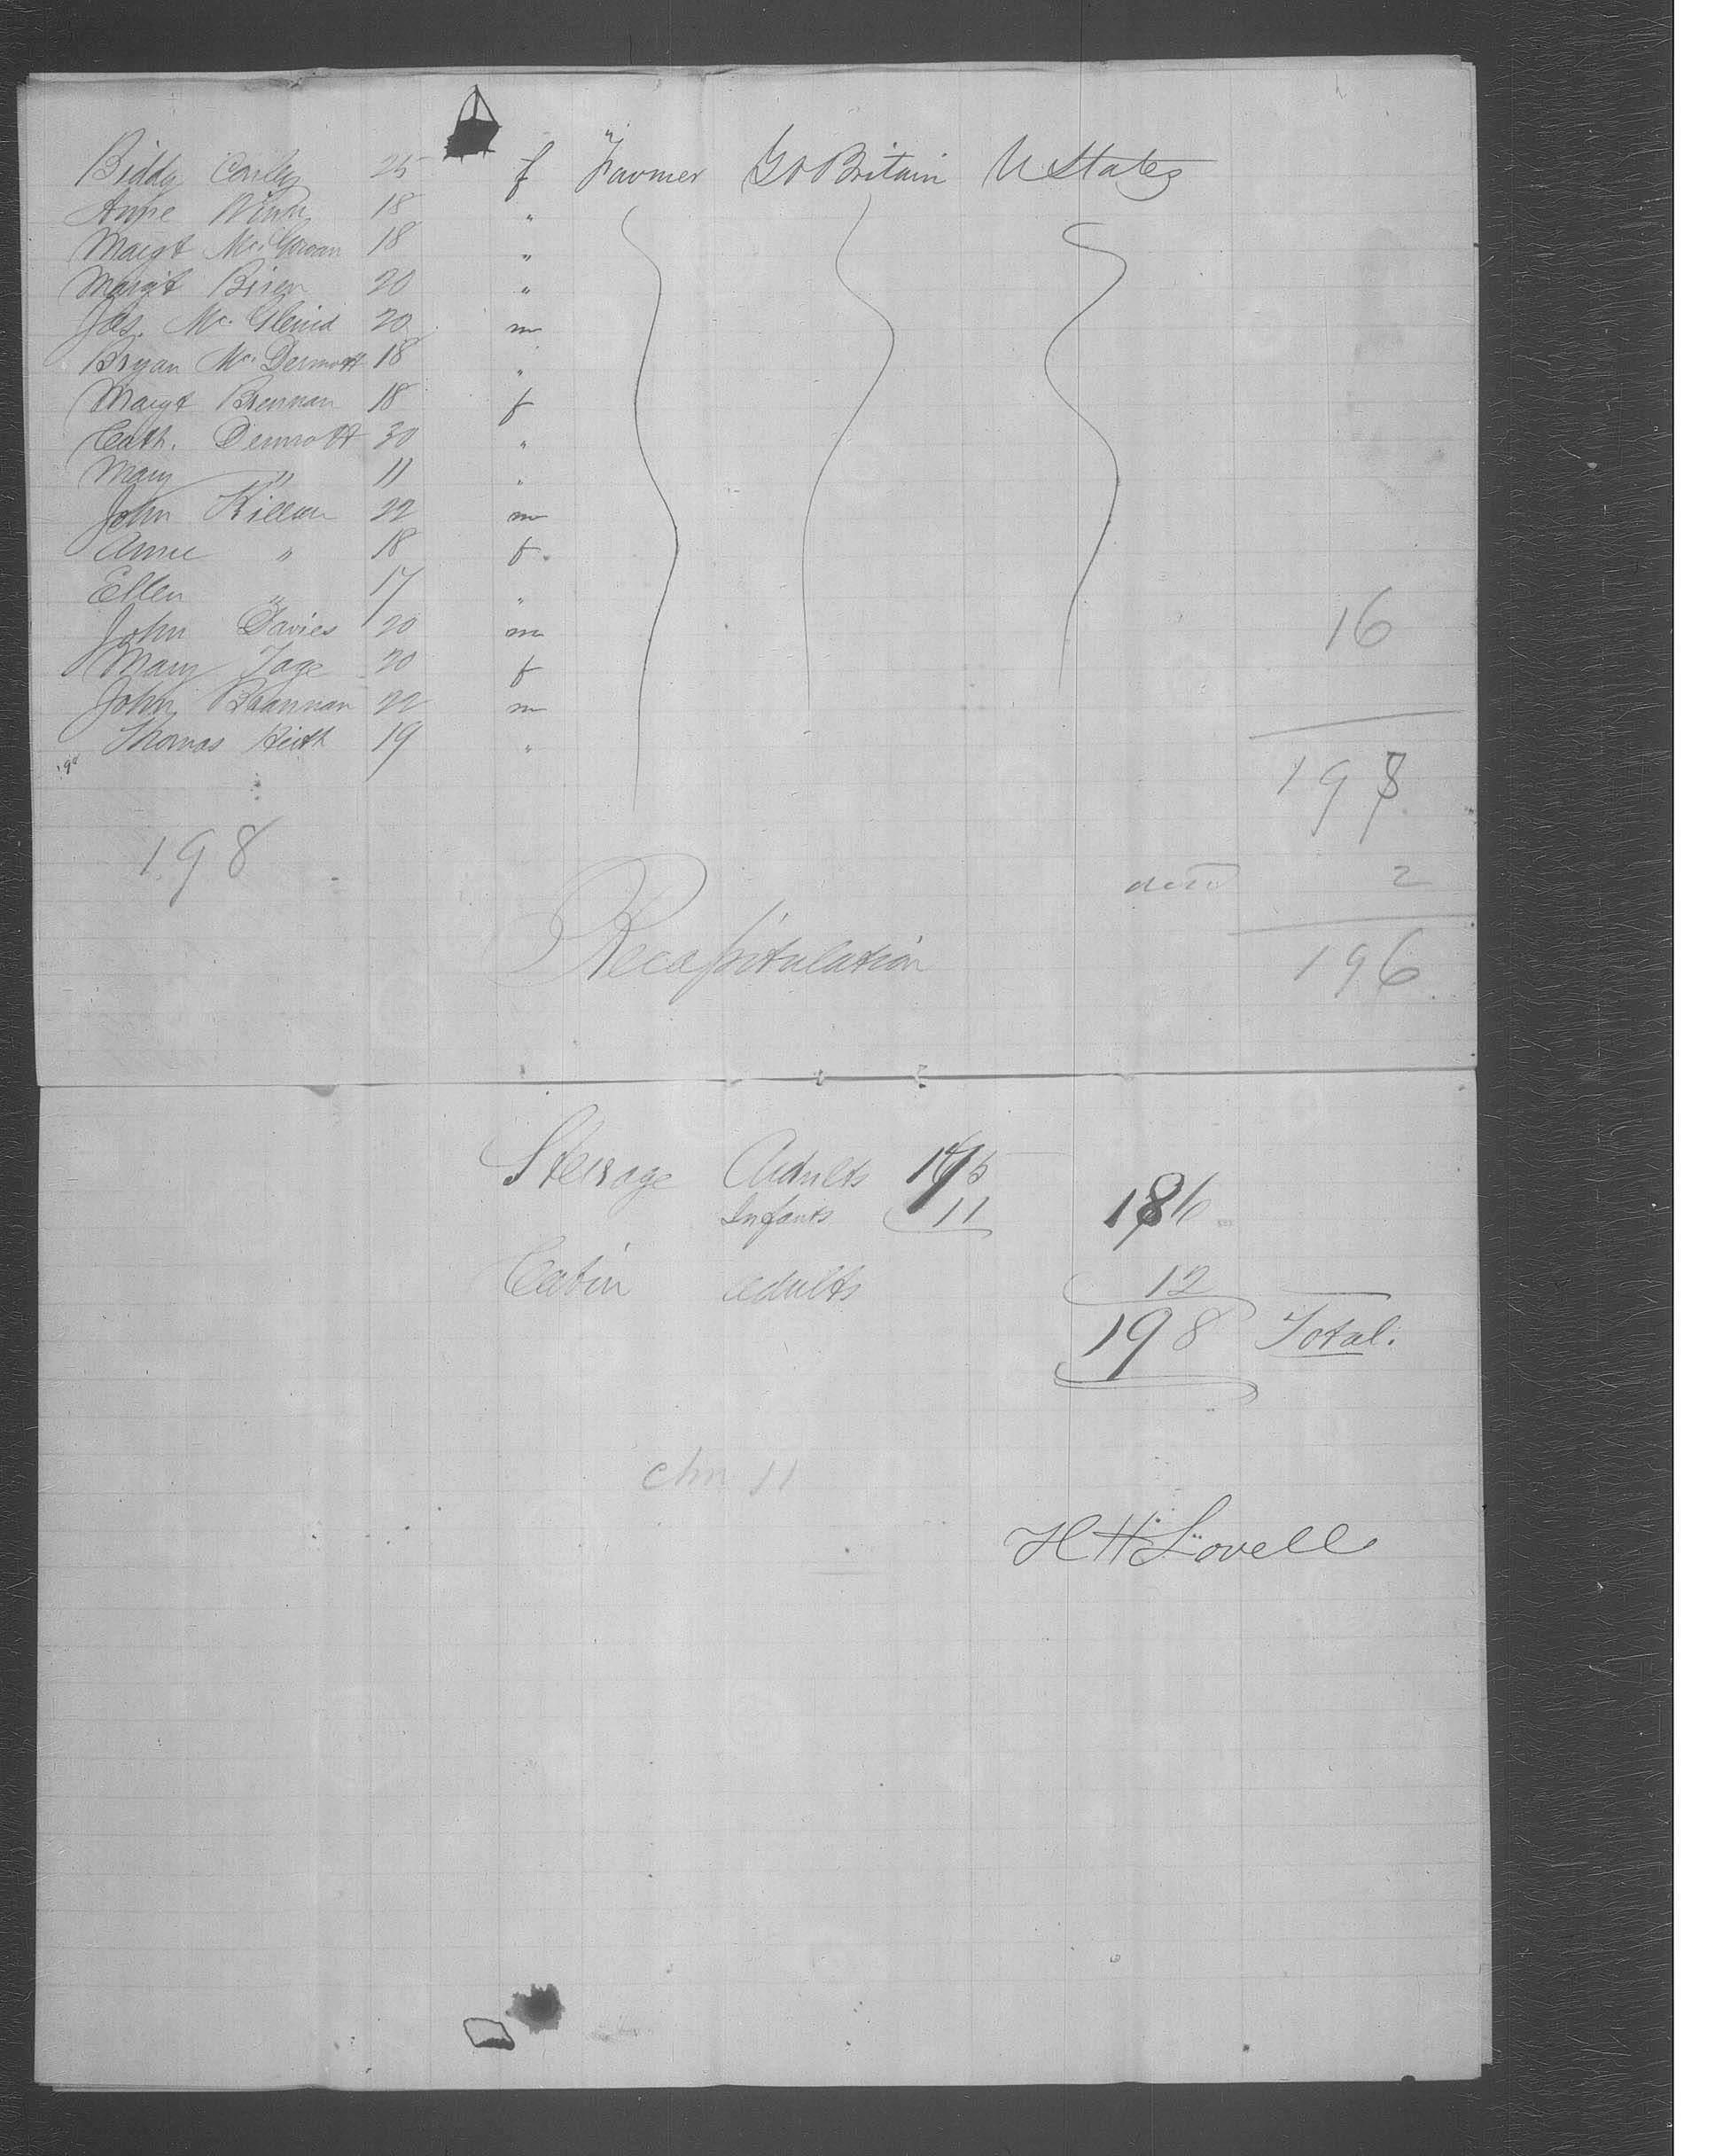 Biddy Conly 25 f Farmer Gt Britain U States
Anne 18 "
Margt Mc.Gowan 18 "
Margt Brien 20 "
Jas. Mc. 20 m
Bryan Mc.Dermott 18 "
Margt Brennan 18 f
Cath. Dermott 30 "
Mary " 11 "
John Killan 22 m
Anne " 18 f
Ellen " 17 "
John Davies 20 m
16
Mary 20 f
John Brannan 22 m
Thomas Keith 19 "
198
198
2
Recapitulation
196
Sterage Adults 175
Infants 11 186
Cabin adults 12
198 Total.
chn 11
H H Lovell